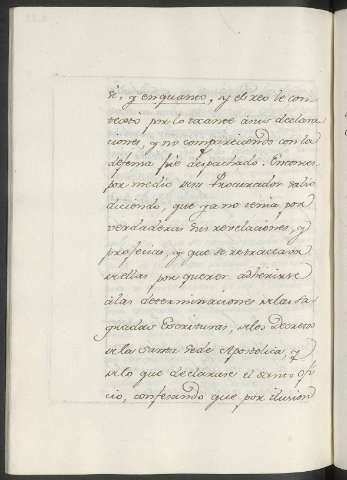 te, y enquanto, y el reo le con-
testó por lo tocante á mis declara-
ciones, y no compareciendo con la
defensa fue despachado. Entonces
por medio de su Procurador salio
diciendo, que ya no tenia por
verdaderas sus revelaciones, y
profecias, y que se retractava
de ellas por querer adherirse
á las determinaciones de las Sa-
gradas Escrituras, de los Decretos
de la Santa Sede Apostolica, y
de lo que declarase el Santo Ofi-
cio, confesando que por ilusion